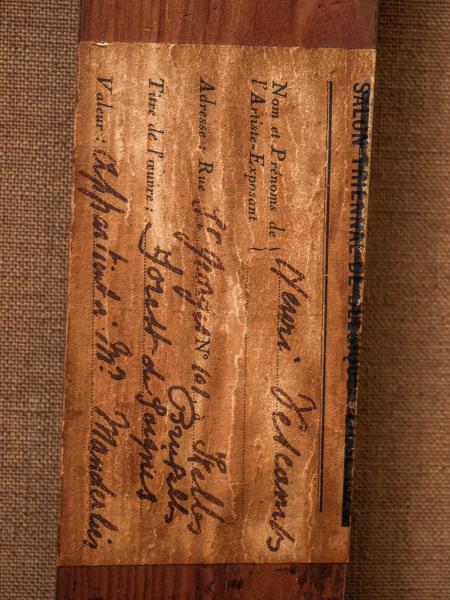 SALON TRIENNAL DE
Nom et Prénoms de
l'Artiste-Exposant
Henri Descamps
Adresse : Rue St Georges N° 101 Ixelles
Bruxelles
Titre de l'œuvre : Forêt de Soignes
Valeur : Appartient à Mr